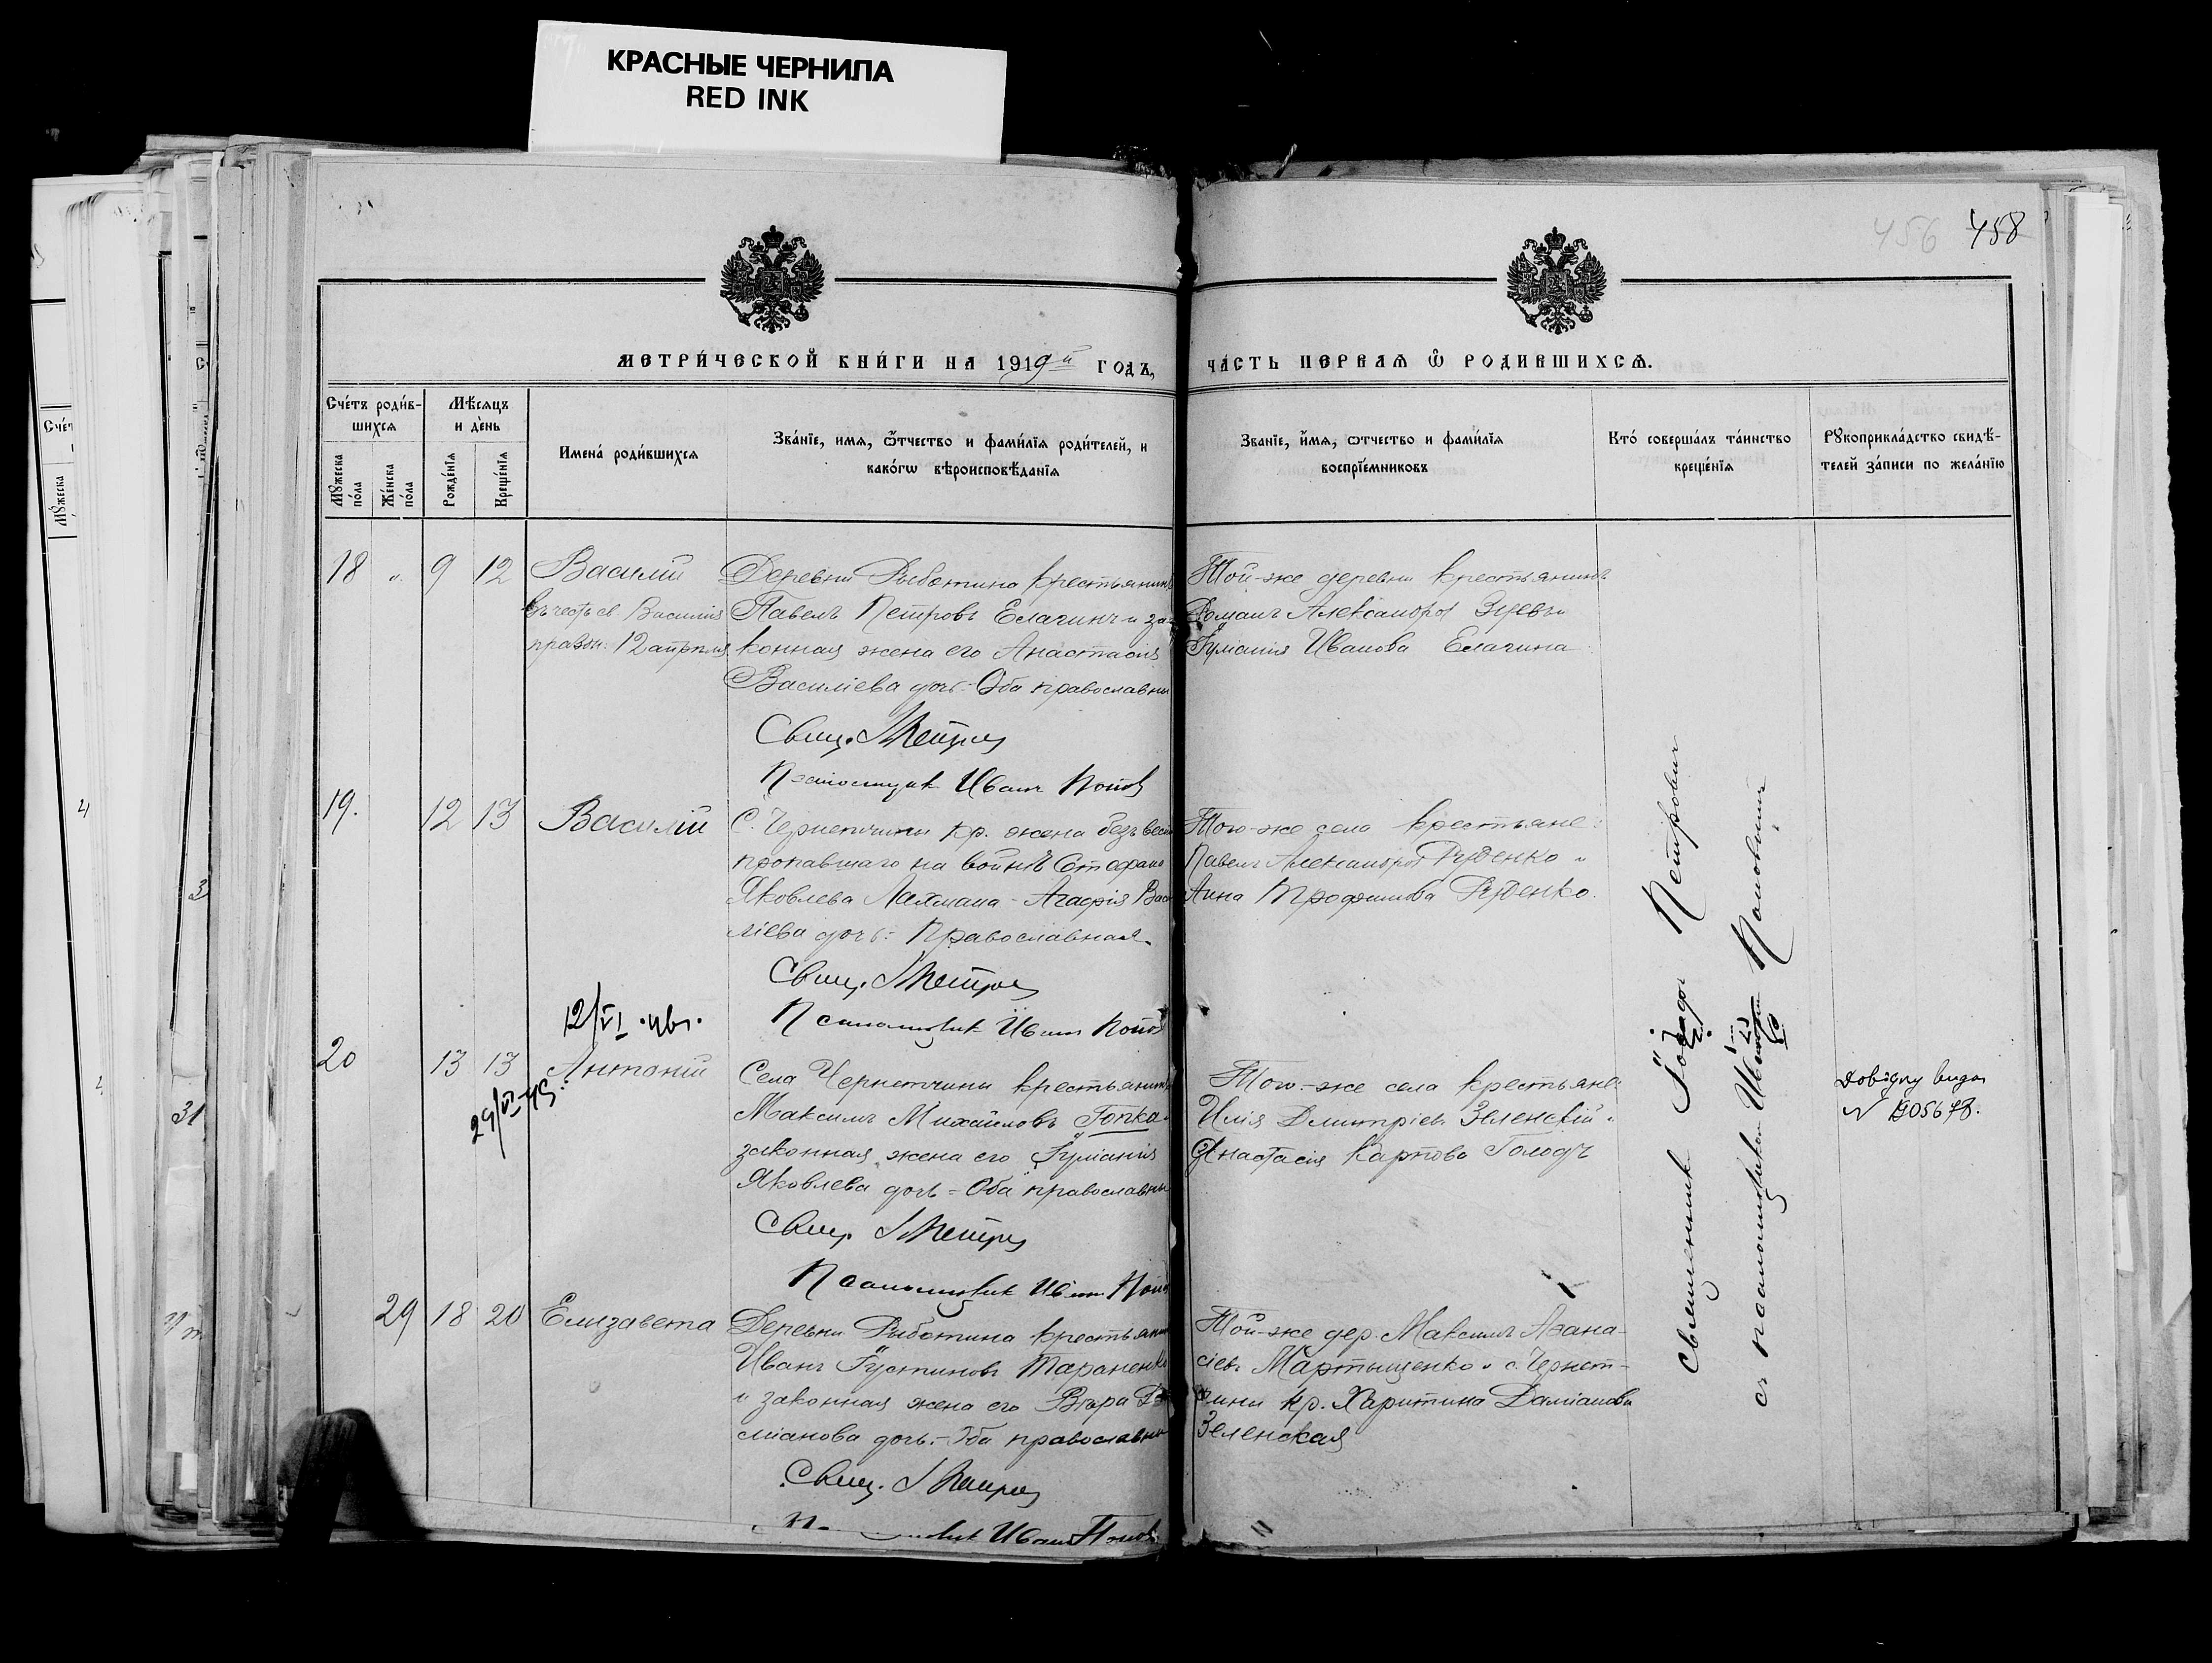 КРАСНЫЕ ЧЕРНИЛА
RED INK
456 458
МЕТРИ́ЧЕСКОЙ КНИ́ГИ НА 1919й ГОДЪ,
ЧА́СТЬ ПЕРВАѦ Ѽ РОДИВШИХСѦ.
Сче́тъ роди́в-
шихсѧ
Мѣсѧцъ
и де́нь
Мꙋ́жеска
по́ла
Же́нска
по́ла
Рожде́нїѧ
Креще́нїѧ
Имена̀ роди́вшихсѧ
Зва́нїе, имѧ, ѻ҆́тчество и фами́лїѧ роди́телей, и
како́гѡ вѣроисповѣ́данїѧ
Зва́нїе, и́мѧ, ѻтчество и фами́лїѧ
воспрїе́мниковъ
Кто̀ соверша́лъ та́инство
креще́нїѧ
Рꙋкоприкла́дство свидѣ́-
телей за́писи по жела́нїю
18 " 9 12 Василій
въ честь св. Василія
праздн: 12 апрѣля
Деревни Рыботина крестьянинъ
Павелъ Петровъ Елагинъ и за-
конная жена его Анастасія
Василіева дочь - Оба православны
Свящ. Петров
Псаломщик Иванъ Попов
Той-же деревни крестьянинъ
Романъ Александров Зуевъ и
Іуліанія Иванова Елагина
19. 12 13 Василій
С. Чернетчины кр. жена безъ вести
пропавшаго на войнѣ Стефана
Яковлева Лахмана - Агафія Васи
ліева дочь: Православная.
Свящ. Петров
Псаломщик Иванъ Попов
Того-же села крестьяне:
Павелъ Александров Руденко и
Анна Трофимова Руденко.
12/VI
20 13 13 Антоній
29/VI-45.
Села Чернетчины крестьянинъ
Максимъ Михайловъ Гопка и
законная жена его Іуліанія
Яковлева дочь - Оба православны
Свящ. Петров
Псаломщик Иван Попов
Того-же села крестьяне
Илія Дмитріевъ Зеленскій и
Анастасія Карпова Голодъ
Довідку видан
N
29 18 20 Елизавета
Деревни Рыботина крестьянинъ
Иванъ Іустиновъ Тараненко
и законная жена его Вѣра Да
міанова дочь. - Оба православны
Свящ. Петров
Псаломщик Иван Попов
Той-же дер. Максимъ Аѳана-
сіевъ Мартыщенко и с. Чернет-
чины кр. Харитина Даміанова
Зеленская
Священникъ Ѳеодор Петрович
съ псаломщиком Иваном Поповымъ